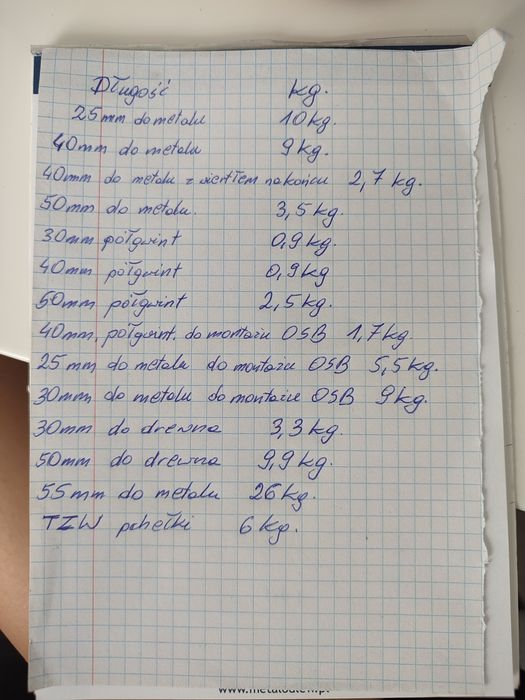 Długość kg.
25mm do metalu 10kg.
40mm do metalu 9kg.
40mm do metalu z wiertłem na końcu 2,7 kg.
50mm do metalu. 3,5kg.
30mm półgwint 0,9kg.
40mm półgwint 0,9kg
50mm półgwint 2,5kg.
40mm, półgwint. do montażu OSB 1,7kg.
25 mm do metalu do montażu OSB 5,5kg.
30mm do metalu do montażu OSB 9kg.
30mm do drewna 3,3kg.
50mm do drewna 9,9kg.
55mm do metalu 26kg.
TZW pchełki 6kg.